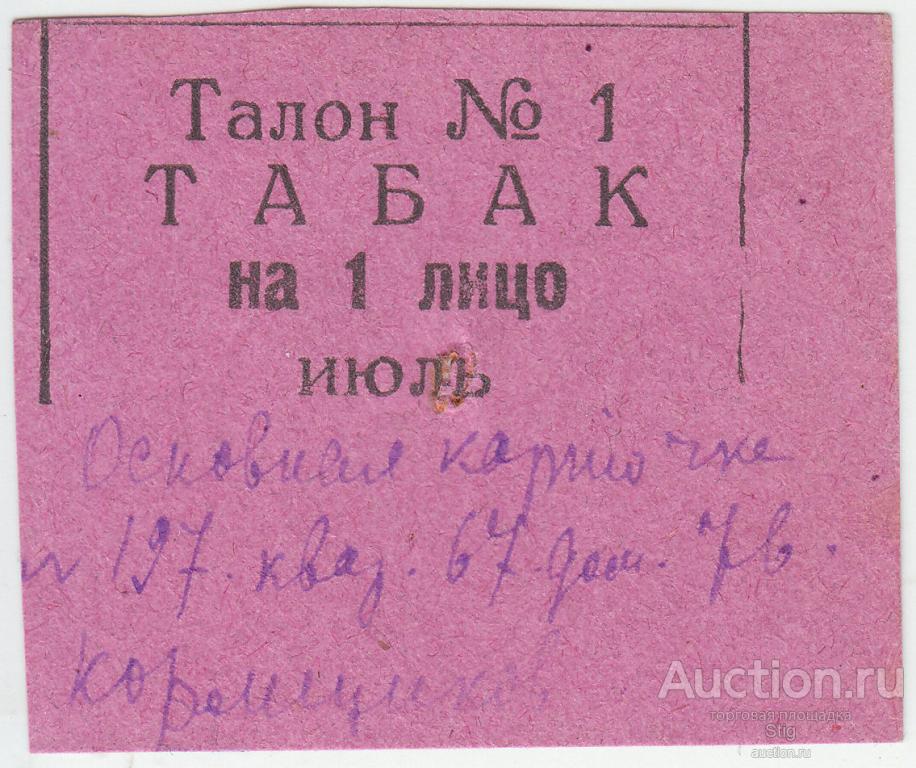 Талон № 1
ТАБАК
на 1 лицо
июль
Основная карточка
197. кваз. 67. дом. 7в.
Auction.ru
торговая площадка
Stig
auction.ru